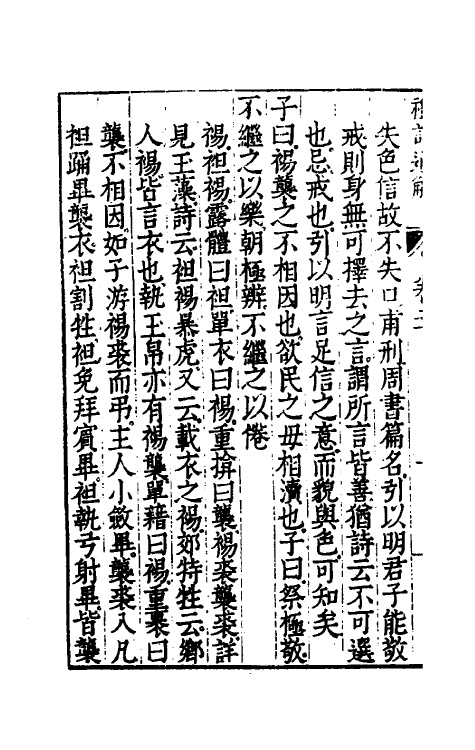 禮記通解
卷二
失色信故不失口甫刑周書篇名引以明君子能敬
戒則身無可擇去之言謂所言皆善猶詩云不可選
也忌戒也引以明言足信之意而貌與色可知矣
子曰裼襲之不相因也欲民之毋相瀆也子曰祭極敬
不繼之以樂朝極辨不繼之以倦
裼袒裼露體曰袒單衣曰裼重揜曰襲裼裘襲裘詳
見王藻詩云袒裼暴虎又云載衣之裼郊特牲云鄉
人裼皆言衣也執王帛亦有裼襲單藉曰裼重裹曰
襲不相因如子游裼裘而弔主人小斂畢襲裘入凡
袒踊畢襲衣袒割牲袒免拜賓畢袒執弓射畢皆襲